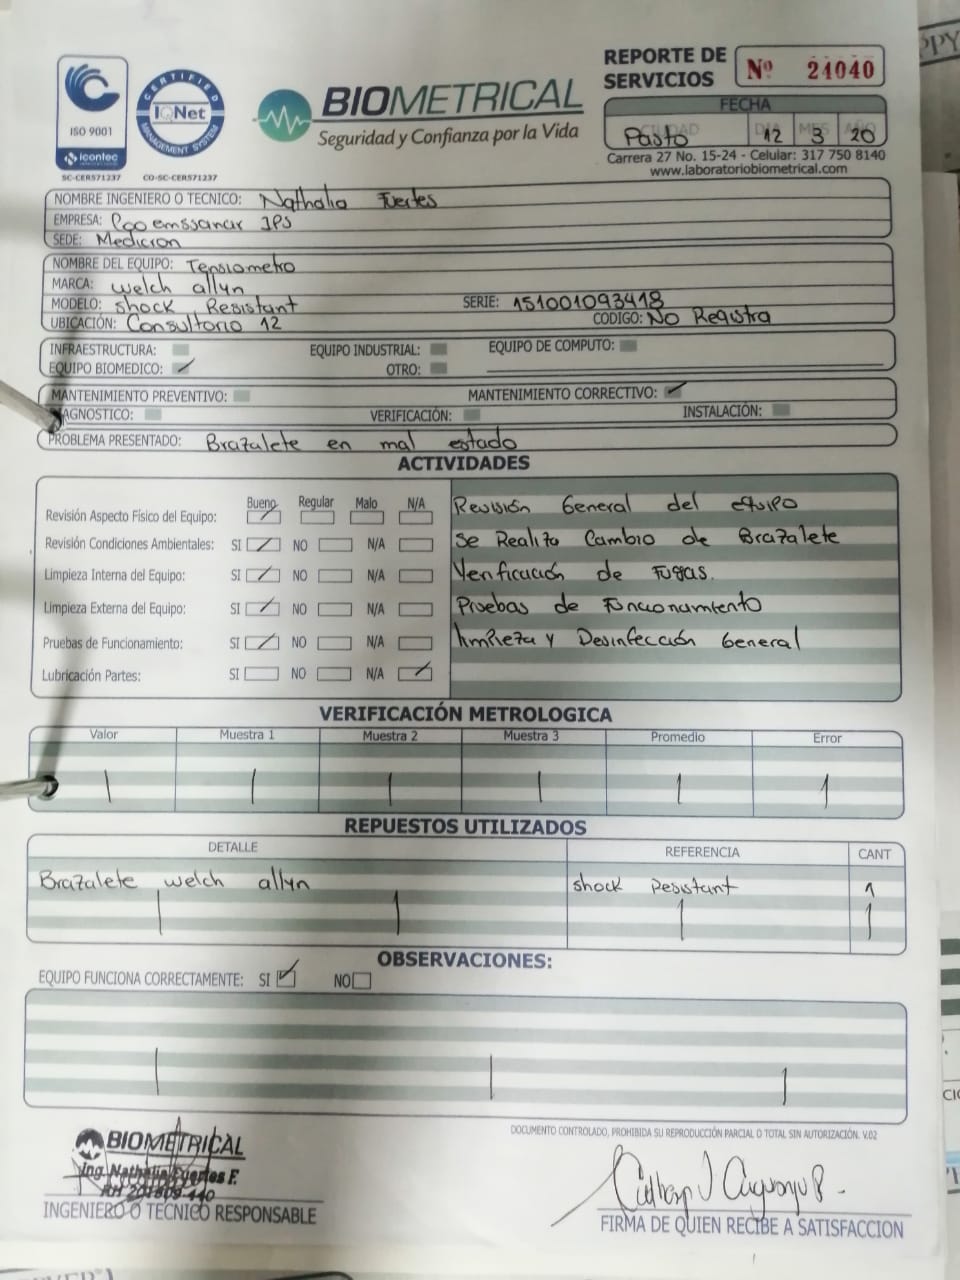 REPORTE DE SERVICIOS Nº 24040
ISO 9001
icontec
SC-CER571237
CERTIFIED
IQNet
MANAGEMENT SYSTEM
CO-SC-CER571237
BIOMETRICAL
Seguridad y Confianza por la Vida
FECHA
CIUDAD DIA MES AÑO
Pasto 12 3 20
Carrera 27 No. 15-24 - Celular: 317 750 8140
www.laboratoriobiometrical.com
NOMBRE INGENIERO O TECNICO: Nathalia Fuertes
EMPRESA: emssanar IPS
SEDE: Medicron
NOMBRE DEL EQUIPO: Tensiometro
MARCA: welch allyn
MODELO: shock Resistant SERIE: 151001093418
UBICACIÓN: Consultorio 12 CODIGO: No Registra
INFRAESTRUCTURA: EQUIPO INDUSTRIAL: EQUIPO DE COMPUTO:
EQUIPO BIOMEDICO: OTRO:
MANTENIMIENTO PREVENTIVO: MANTENIMIENTO CORRECTIVO:
AGNOSTICO: VERIFICACIÓN: INSTALACIÓN:
PROBLEMA PRESENTADO: Brazalete en mal estado
ACTIVIDADES
Bueno Regular Malo N/A
Revisión Aspecto Físico del Equipo:
Revisión Condiciones Ambientales: SI NO N/A
Limpieza Interna del Equipo: SI NO N/A
Limpieza Externa del Equipo: SI NO N/A
Pruebas de Funcionamiento: SI NO N/A
Lubricación Partes: SI NO N/A
Revisión General del equipo
Se Realiza Cambio de Brazalete
Verificación de Fugas.
Pruebas de Funcionamiento
limpieza y Desinfección General
VERIFICACIÓN METROLOGICA
Valor Muestra 1 Muestra 2 Muestra 3 Promedio Error
REPUESTOS UTILIZADOS
DETALLE REFERENCIA CANT
Brazalete welch allyn shock Resistant 1
OBSERVACIONES:
EQUIPO FUNCIONA CORRECTAMENTE: SI NO
DOCUMENTO CONTROLADO, PROHIBIDA SU REPRODUCCIÓN PARCIAL O TOTAL SIN AUTORIZACIÓN. V.02
BIOMETRICAL
Ing. Nathalia Fuertes F.
INGENIERO O TECNICO RESPONSABLE
FIRMA DE QUIEN RECIBE A SATISFACCION